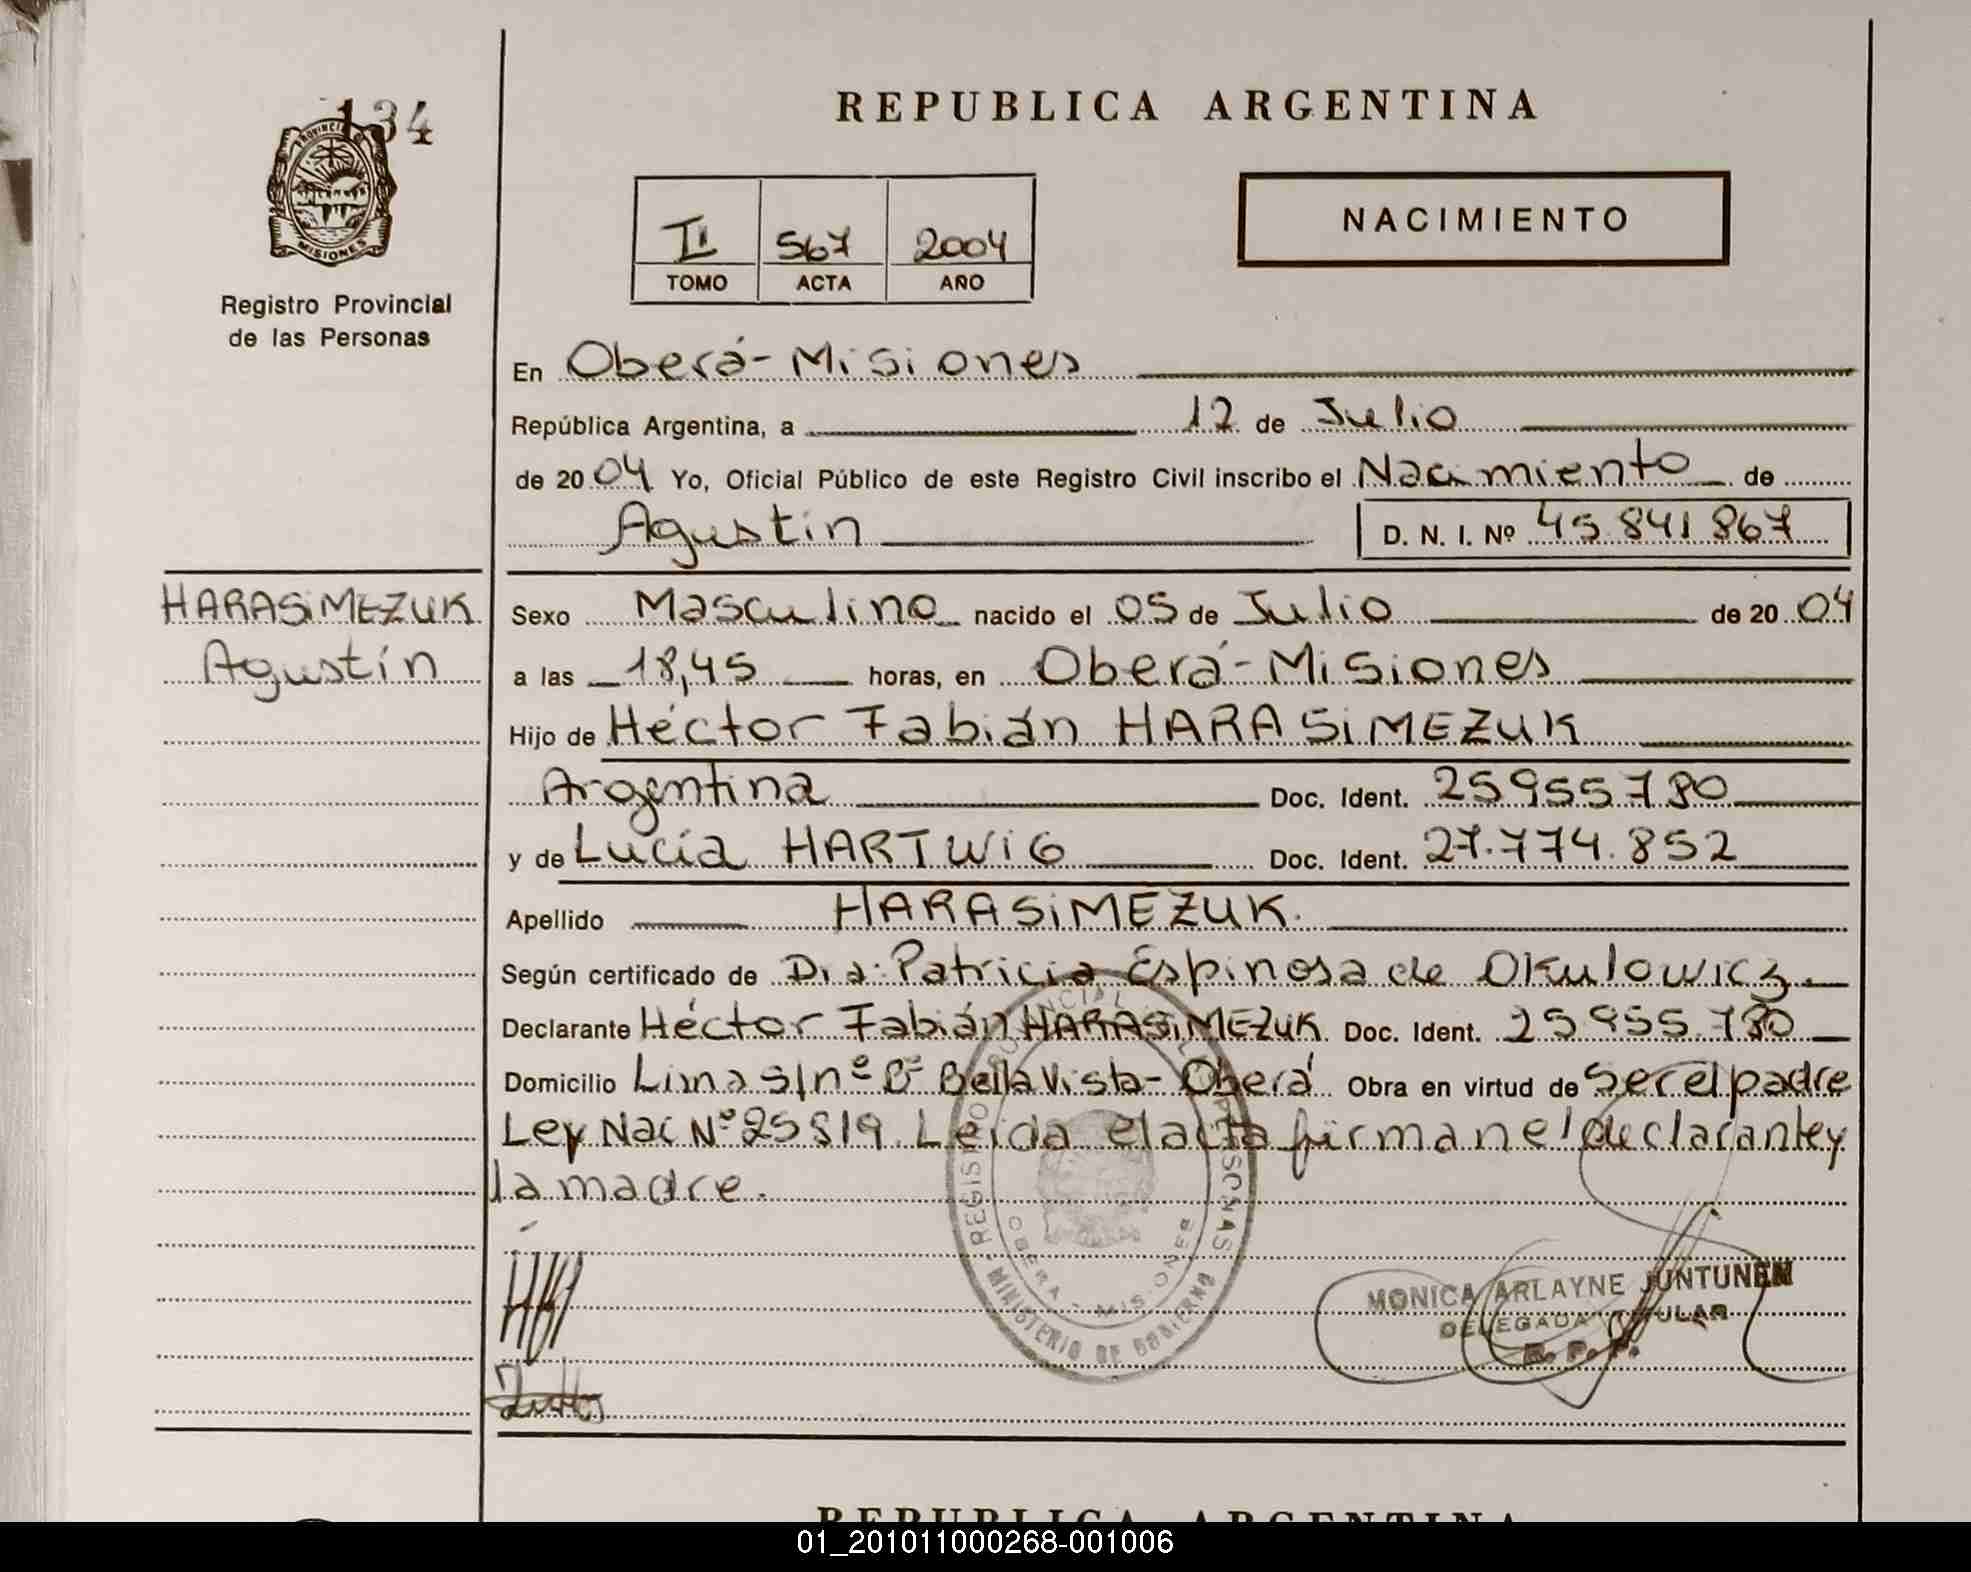 134
PROVINCIA
MISIONES
Registro Provincial
de las Personas
REPUBLICA ARGENTINA
II 567 2004
TOMO ACTA AÑO
NACIMIENTO
En Oberá - Misiones
República Argentina, a 12 de Julio
de 2004 Yo, Oficial Público de este Registro Civil inscribo el Nacimiento de
Agustín D. N. I. Nº 45.841.867
HARASiMEZUK
Agustín
Sexo Masculino nacido el 05 de Julio de 2004
a las 18,45 horas, en Oberá - Misiones
Hijo de Héctor Fabián HARASiMEZUK
Argentina Doc. Ident. 25955780
y de Lucía HARTWiG Doc. Ident. 27.774.852
Apellido HARASiMEZUK.
Según certificado de Dra: Patricia Espinosa de Okulowicz.
Declarante Héctor Fabián HARASiMEZUK Doc. Ident. 25.955.780
Domicilio Lima s/nº Bº Bella Vista - Oberá Obra en virtud de ser el padre
Ley Nac Nº 25819. Leída el acta firman el declarante y
la madre.
REGISTRO PROVINCIAL DE LAS PERSONAS
OBERA - MISIONES
MINISTERIO DE GOBIERNO
MONICA ARLAYNE JUNTUNEN
DELEGADA TITULAR
R. P. P.
REPUBLICA ARGENTINA
01_201011000268-001006